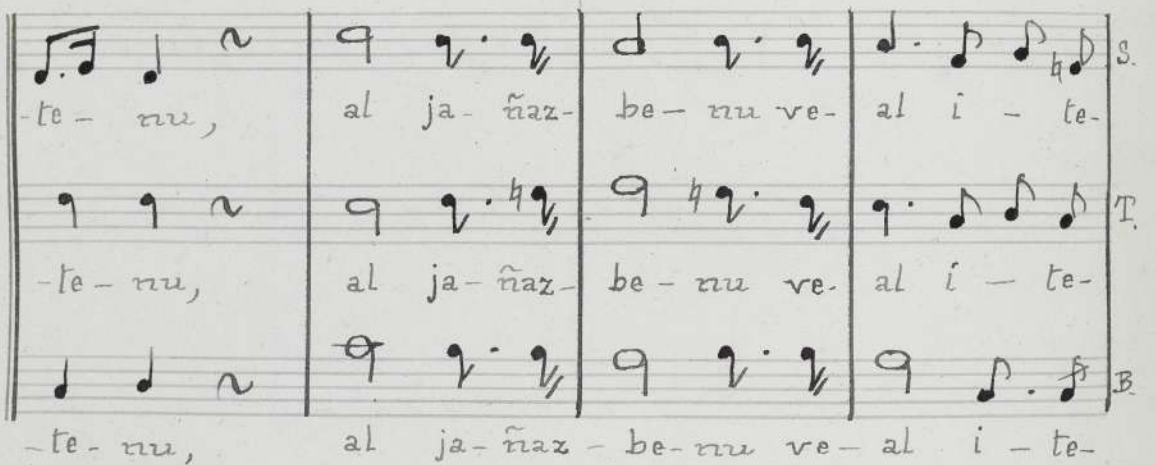 S.
-te- nu, al ja- ñaz- be- nu ve- al i - te-
T.
-te- nu, al ja- ñaz- be- nu ve- al i - te-
B.
-te- nu, al ja- ñaz - be- nu ve- al i - te-